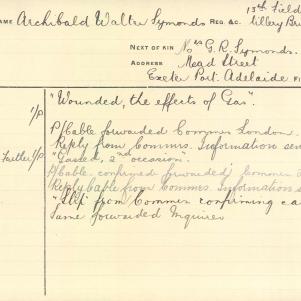 13th Field
NAME Archibald Walter Symonds REG. &C. tillery Bri
NEXT OF KIN Mrs G. R. Symonds.
ADDRESS Mead Street
Exeter Port Adelaide
1/P "Wounded, the effects of Gas".
P/Cable forwarded Commrs London.
Reply from Commrs. Information sen
Further 1/P "Gassed, 2nd occasion".
P/Cable confirmed forwarded Commrs
Reply Cable from Commrs. Information s
from Commrs confirming ca
Same forwarded Inquirer